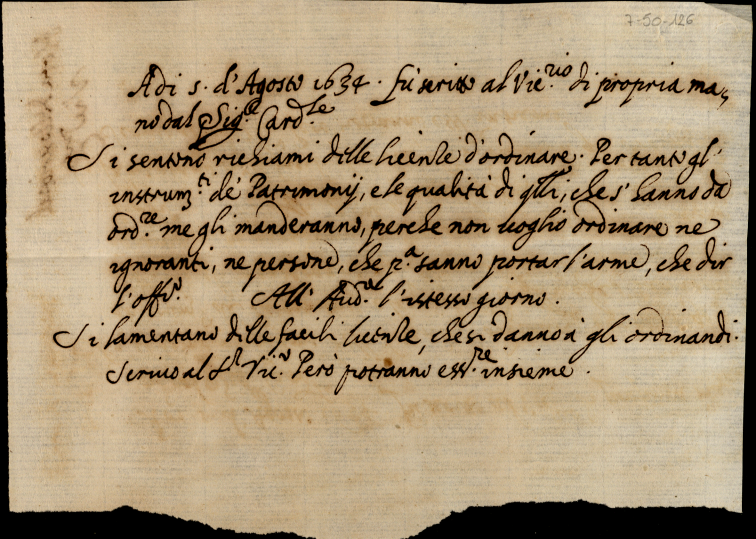 7-50-126
Adi 5. d'Agosto 1634. fù scritto al Vic.rio di propria ma-
no dal Sig.r Card.le
Si sentono richiami delle licenze d'ordinare. Pertanto gl'
instrum.ti de' Patrimonij, e le qualità di q̃lli, che s'hanno da
ord.re me gli manderanno, perche non uoglio ordinare ne
ignoranti, ne persone, che p.a sanno portar l'arme, che dir
l'offi.o All' Aud.re l'istesso giorno.
Si lamentano delle facili licenze, che si danno à gli ordinandi.
Scriuo al S.r Vic.o Però potranno ess.re insieme.